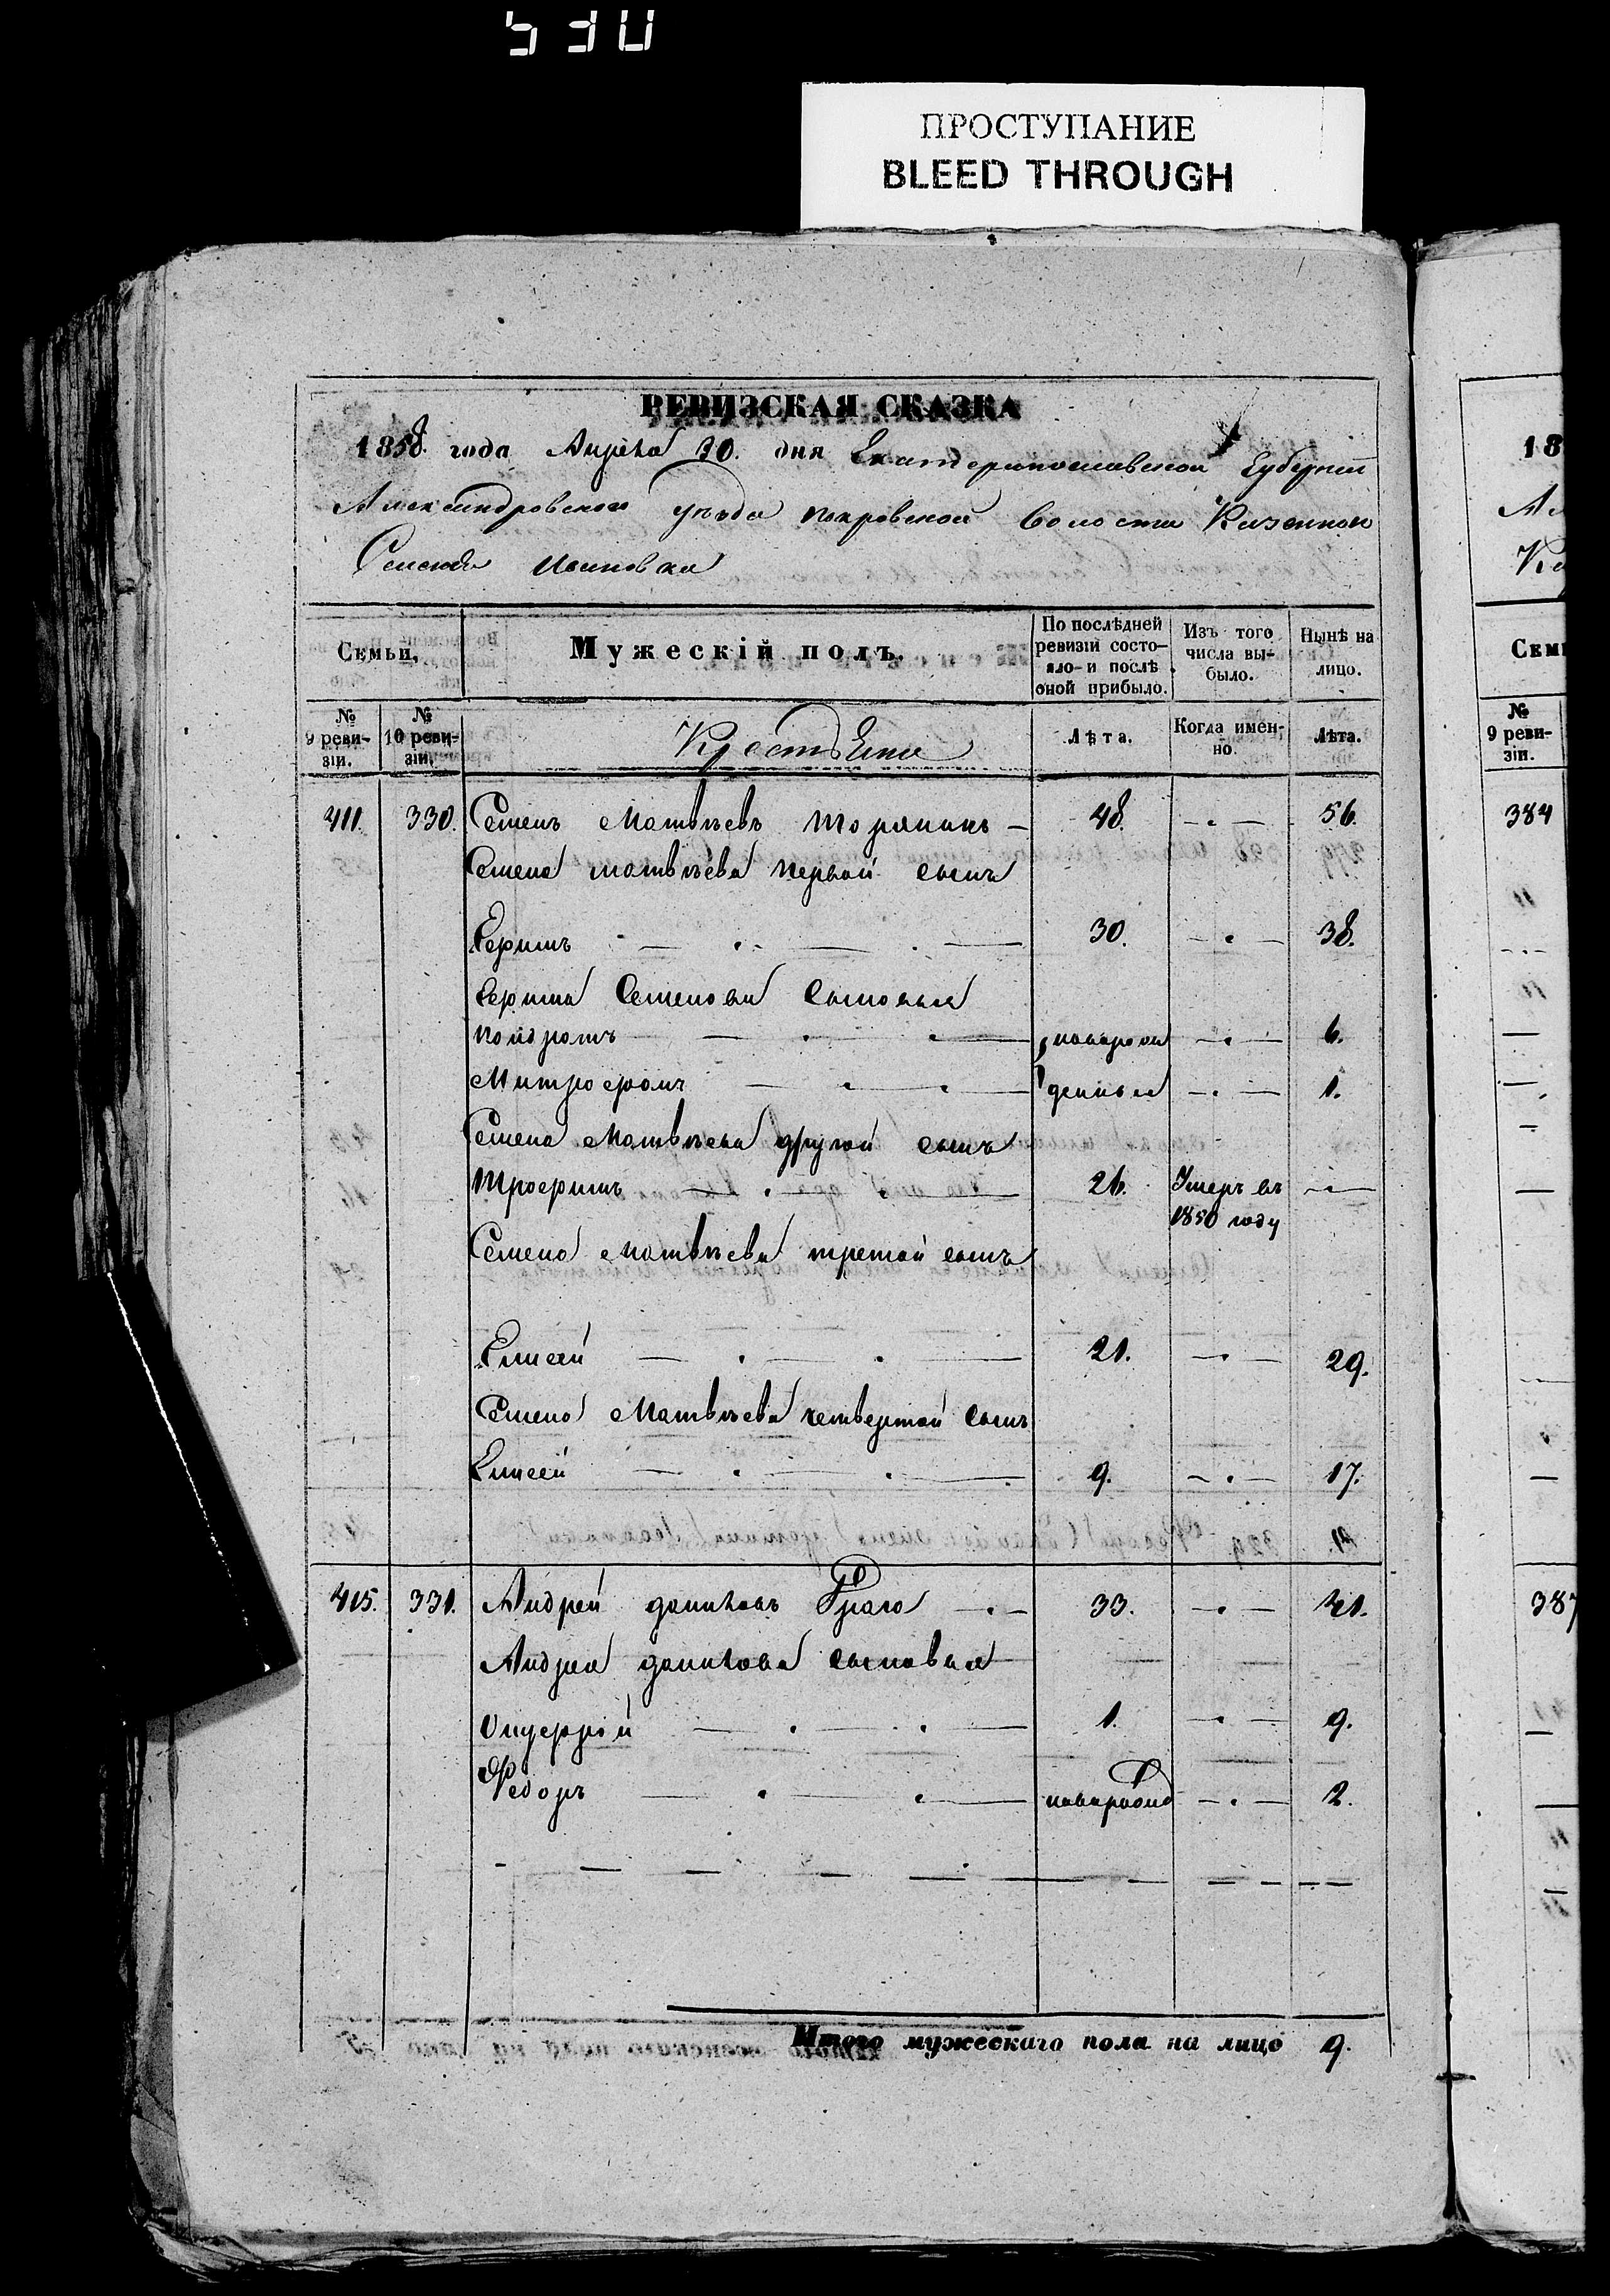 530
ПРОСТУПАНИЕ
BLEED THROUGH
РЕВИЗСКАЯ СКАЗКА
1858. года Апреля 30. дня Екатеринославской Губернии
Александровского уезда покровской волости Казенной
Ивановки
Семьи.
Мужескій полъ.
По послѣдней ревизіи состояло и послѣ оной прибыло.
Изъ того числа выбыло.
Нынѣ на лицо.
№ 9 ревизіи.
№ 10 ревизіи.
Крестьяне
Лѣта.
Когда именно.
Лѣта.
411. 330. Семенъ Матвѣевъ — 48. — 56.
Семена матвѣева первой сынъ
Ефимъ — 30. — 38.
Ефима Семенова сыновья
Кондратъ — новорож — 6.
Митрофанъ — денныя — 1.
Семена Матвѣева другой сынъ
Трофимъ — 26. Умеръ въ 1850 году —
Семена Матвѣева третой сынъ
Елисей — 21. — 29.
Семена Матвѣева четвертой сынъ
Елисей — 9. — 17.
415. 331. Андрей даниловъ — 33. — 41.
Андрея данилова сыновья
Ондерѣй — 1. — 9.
Федоръ — — 2.
Итого мужескаго пола на лицо 9.
18
Ка
Семь
№ 9 ревизіи.
384
387